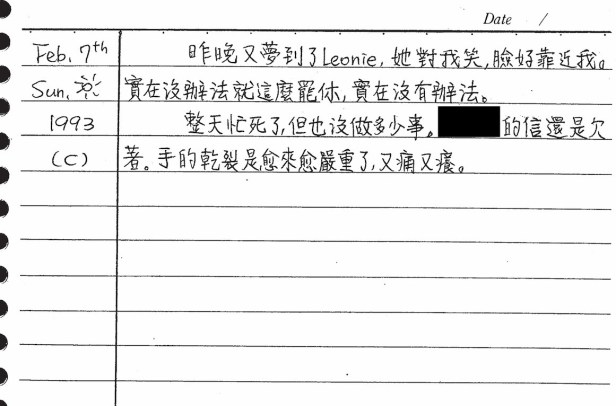 Date /
Feb. 7th 昨晚又夢到了Leonie, 她對我笑, 臉好靠近我。
Sun. 實在沒辦法就這麼罷休, 實在沒有辦法。
1993 整天忙死了, 但也沒做多少事。 的信還是欠
(C) 著。手的乾裂是愈來愈嚴重了, 又痛又癢。